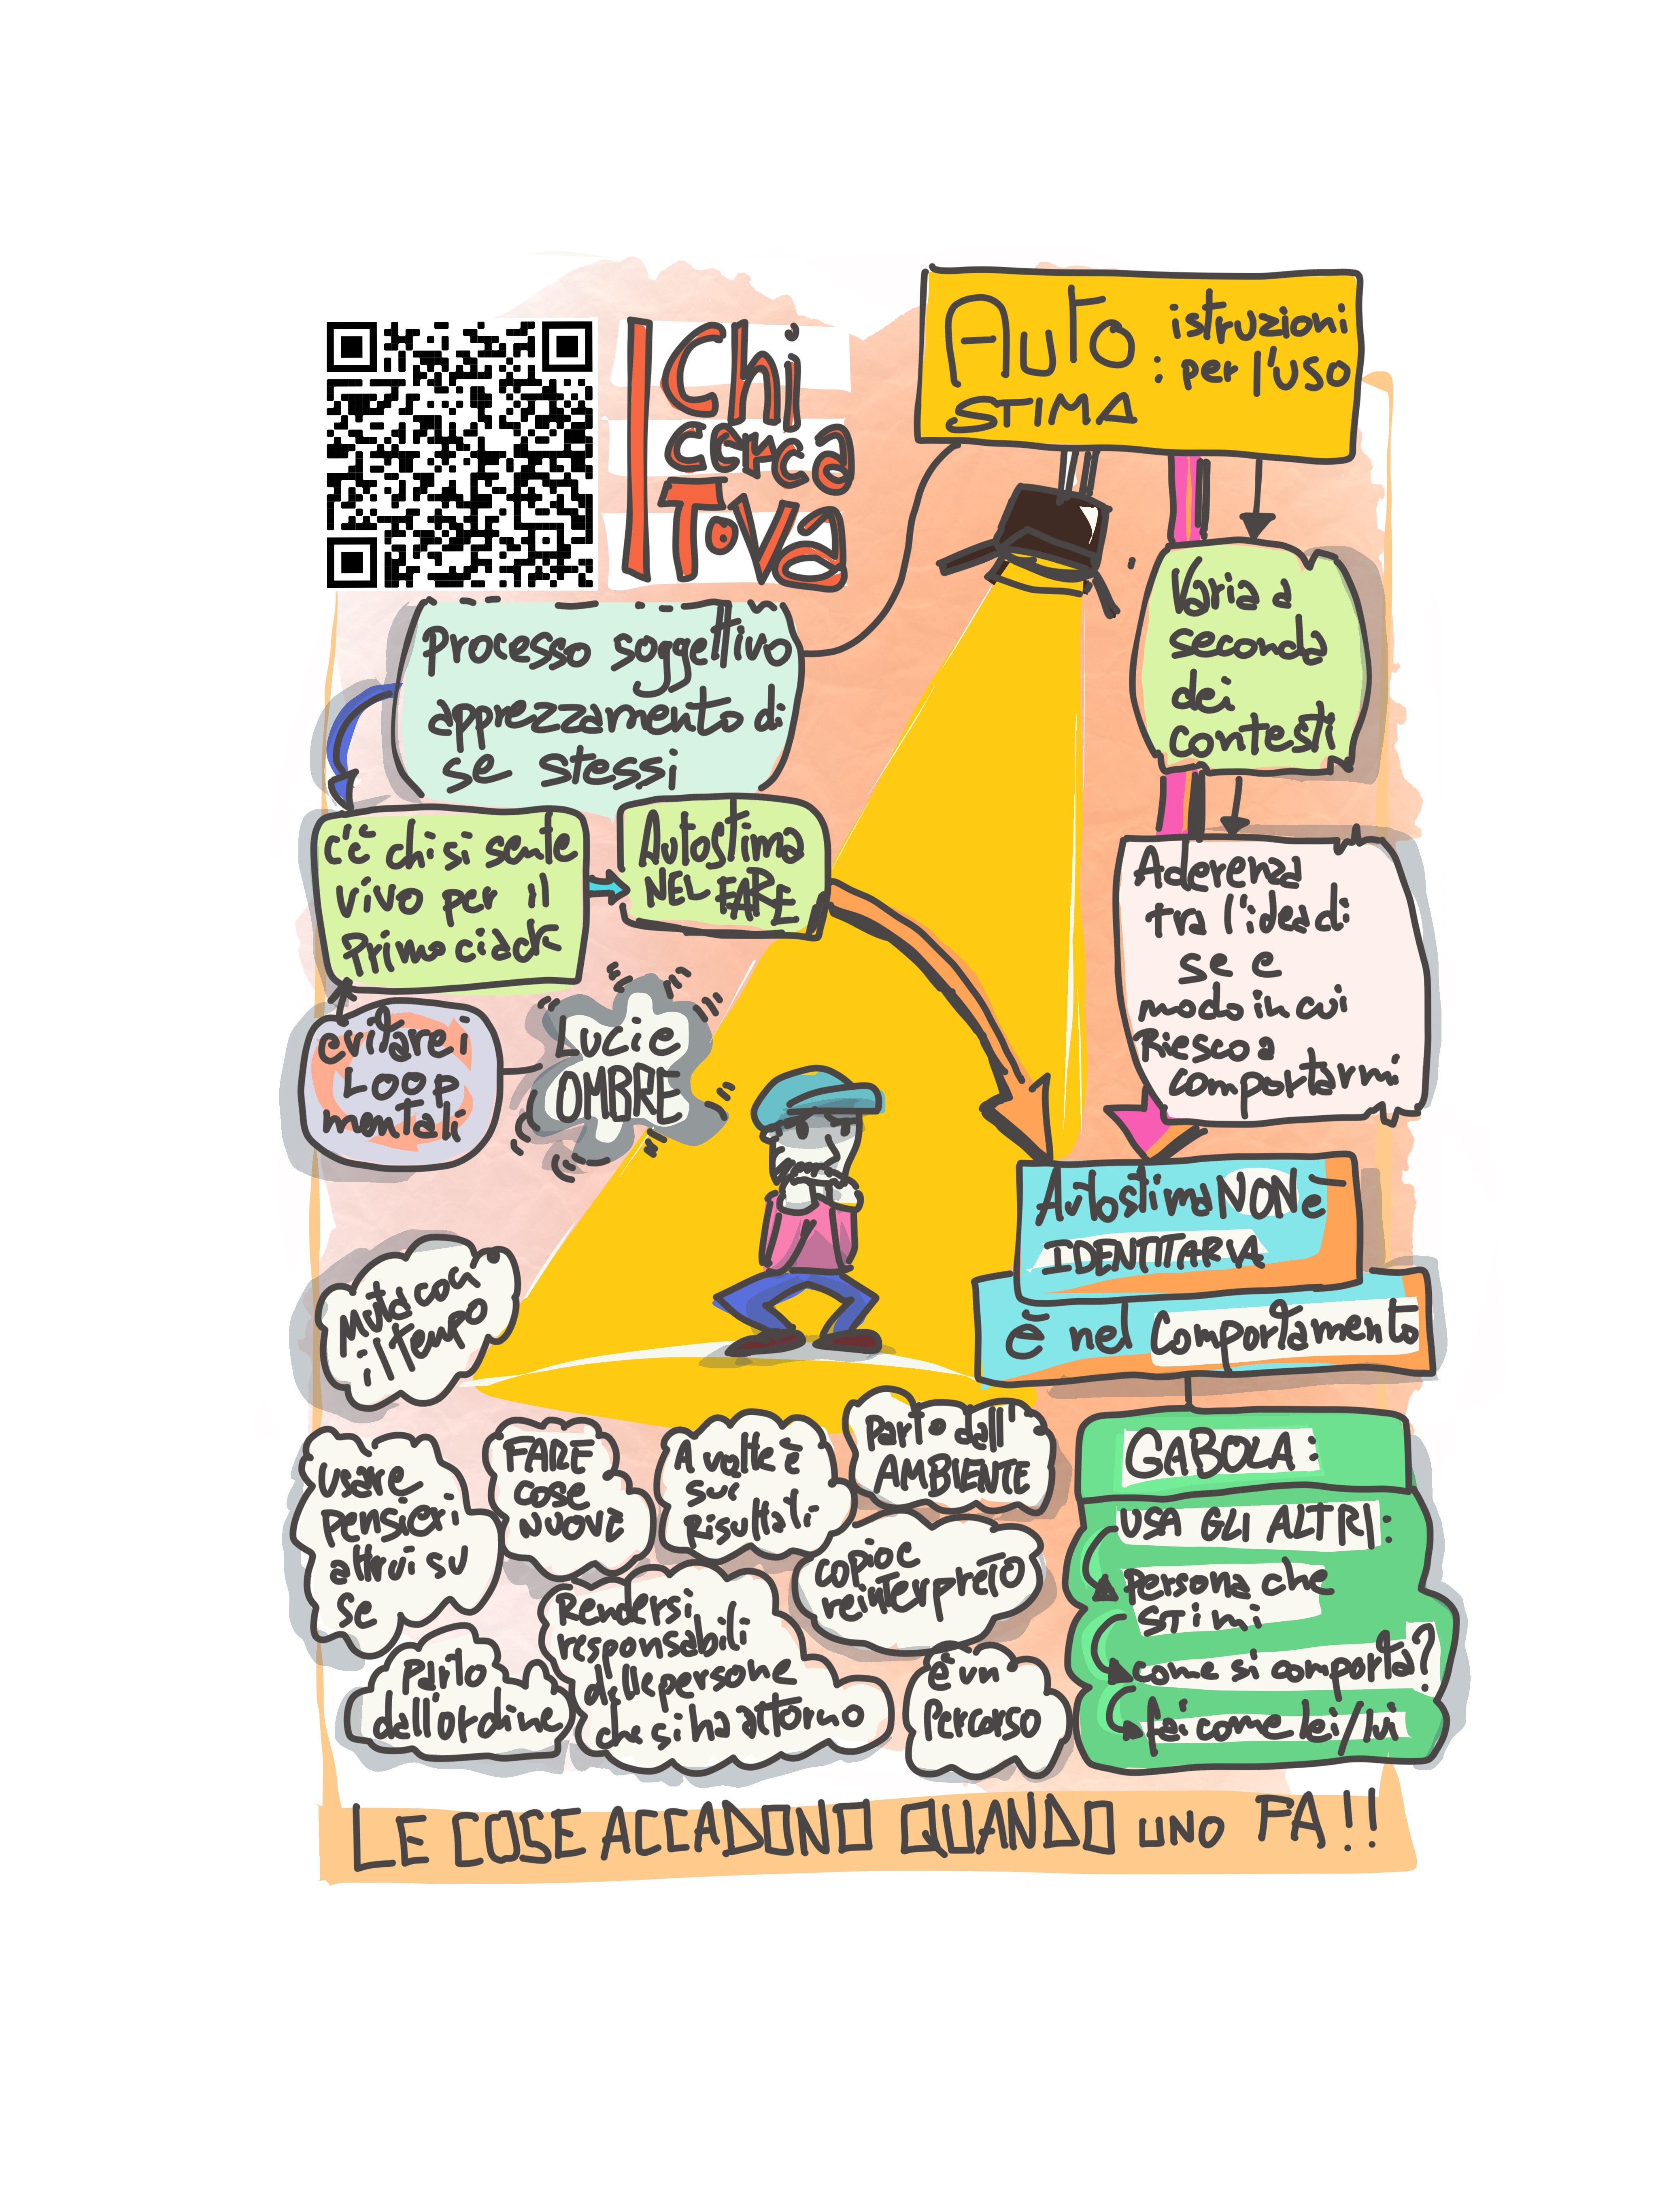 Chi
cerca
Tova
AUTO
STIMA
: istruzioni
per l'uso
Processo soggettivo
apprezzamento di
se stessi
c'è chi si sente
vivo per il
Primo ciack
Autostima
NEL FARE
evitare i
LOOP
mentali
LUCI e
OMBRE
Varia a
seconda
dei
contesti
Aderenza
tra l'idea di
se e
modo in cui
Riesco a
comportarmi
Autostima NON è
IDENTITARIA
è nel Comportamento
GABOLA:
USA GLI ALTRI:
Persona che
stimi
come si comporta?
fai come lei/lui
Muta con
il tempo
usare
pensieri
altrui su
se
FARE
cose
NUOVE
A volte è
sui
Risultati
Parto dall'
AMBIENTE
copio e
reinterpreto
Parto
dall'ordine
Rendersi
responsabili
delle persone
che si ha attorno
è un
Percorso
LE COSE ACCADONO QUANDO UNO FA!!